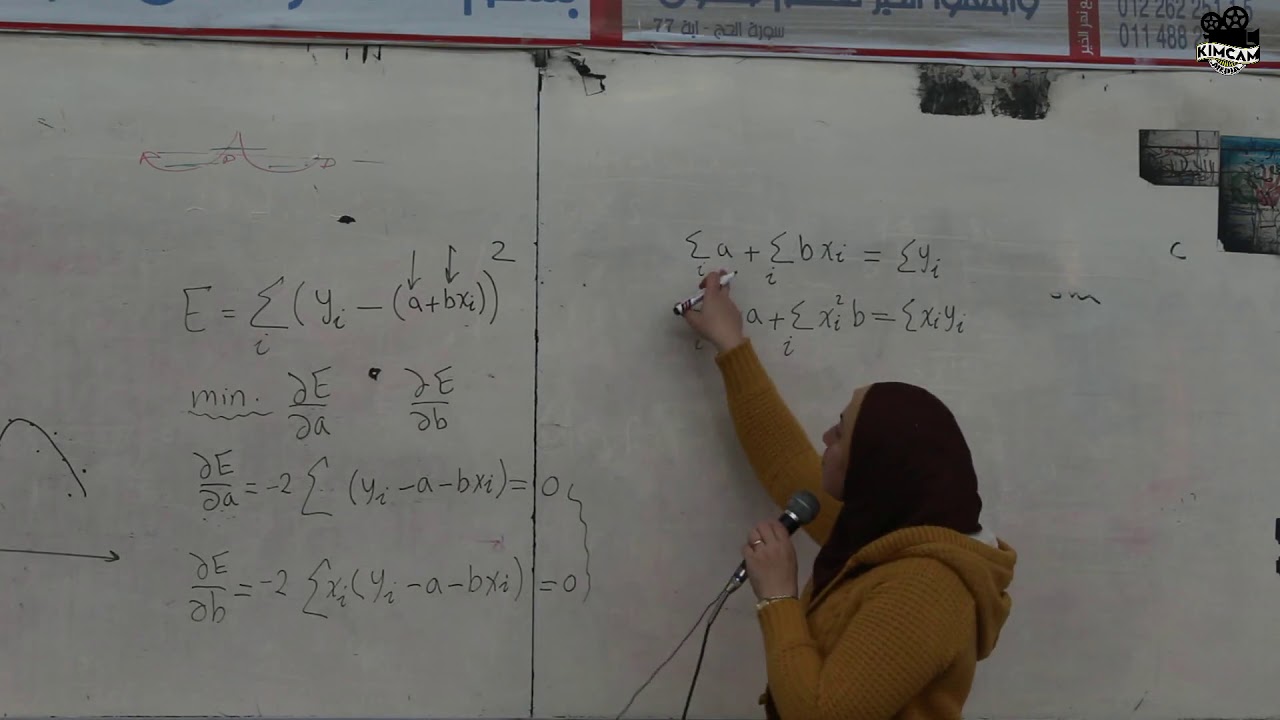 سورة الحج - آية 77
011 488
KIMCAM
E = Σ_i (y_i − (a+bx_i))²
min. ∂E/∂a ∂E/∂b
∂E/∂a = -2 Σ (y_i − a − bx_i) = 0
∂E/∂b = -2 Σ x_i (y_i − a − bx_i) = 0
Σ_i a + Σ_i b x_i = Σ y_i
a + Σ_i x_i² b = Σ x_i y_i